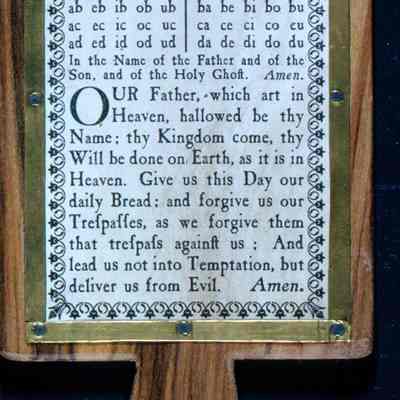 ab eb ib ob ub ba be bi bo bu
ac ec ic oc uc ca ce ci co cu
ad ed id od ud da de di do du
In the Name of the Father and of the
Son, and of the Holy Ghoſt. Amen.
OUR Father, which art in
Heaven, hallowed be thy
Name; thy Kingdom come, thy
Will be done on Earth, as it is in
Heaven. Give us this Day our
daily Bread; and forgive us our
Treſpaſſes, as we forgive them
that treſpaſs againſt us: And
lead us not into Temptation, but
deliver us from Evil. Amen.